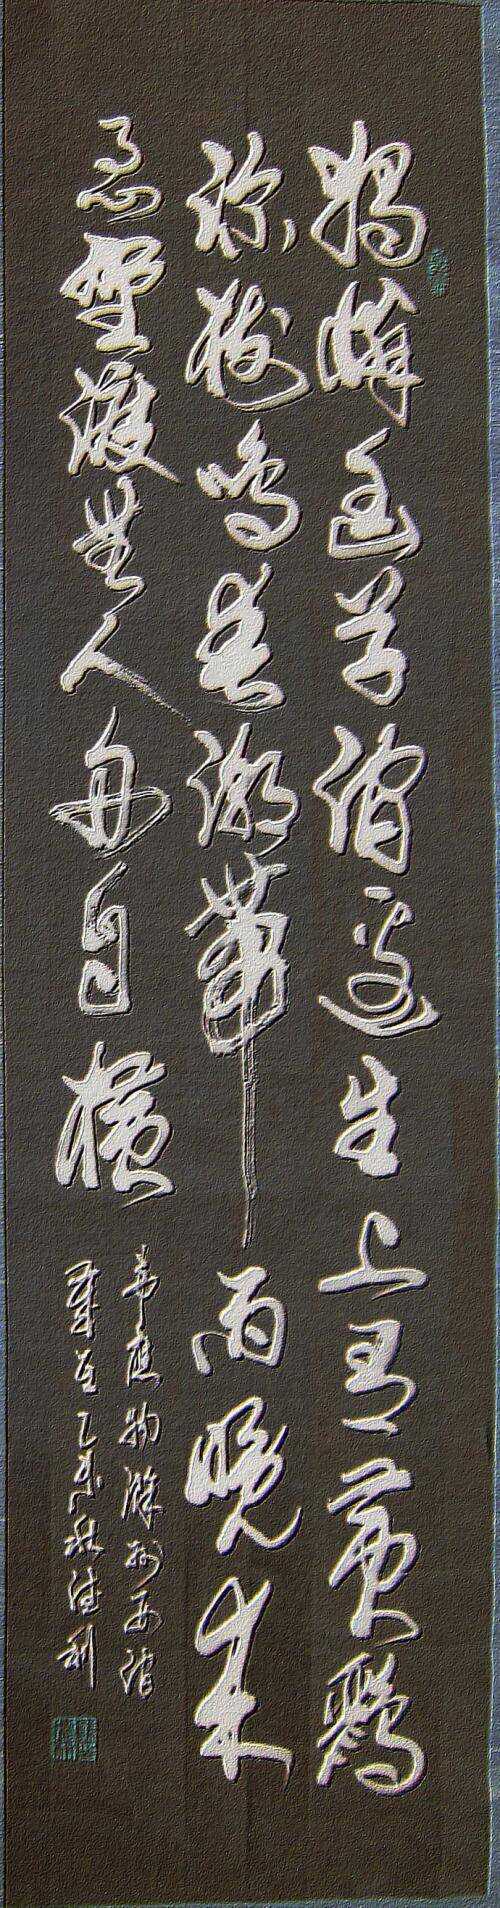 獨憐幽草澗邊生上有黃鸝
深樹鳴春潮帶雨晚來
急野渡無人舟自橫
韋應物滁州西澗